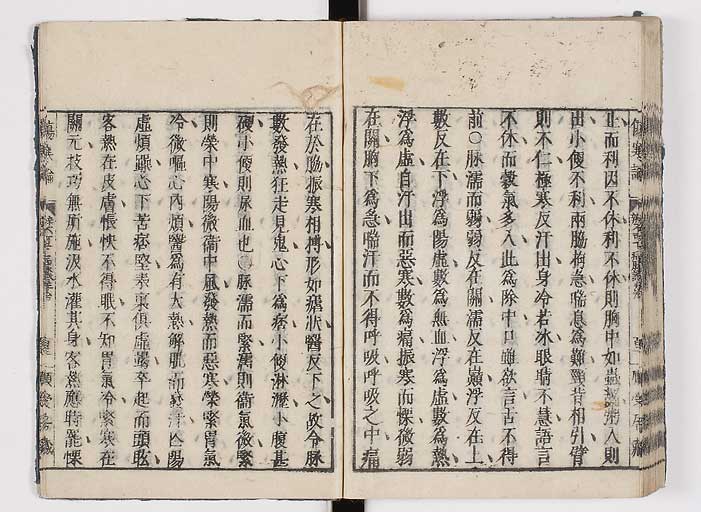 止而利因不休利不休則胸中如蟲齧粥入則
出小便不利兩脇拘急喘息為難頸背相引臂
則不仁極寒反汗出身冷若冰眼睛不慧語言
不休而穀氣多入此為除中口雖欲言舌不得
前〇脉濡而弱弱反在關濡反在巔浮反在上
數反在下浮為陽虛數為無血浮為虛數為熱
浮為虛自汗出而惡寒數為痛振寒而慄微弱
在關胸下為急喘汗而不得呼吸呼吸之中痛
在於脇振寒相搏形如瘧狀醫反下之故令脉
數發熱狂走見鬼心下為痞小便淋瀝小腹甚
硬小便則尿血也〇脉濡而緊濡則衞氣微緊
則榮中寒陽微衞中風發熱而惡寒榮緊胃氣
冷微嘔心內煩醫為有大熱解肌而發汗亡陽
虛煩躁心下苦痞堅表裏俱虛竭卒起而頭眩
客熱在皮膚悵怏不得眠不知胃氣冷緊寒在
關元技巧無所施汲水灌其身客熱應時罷慄
傷寒論